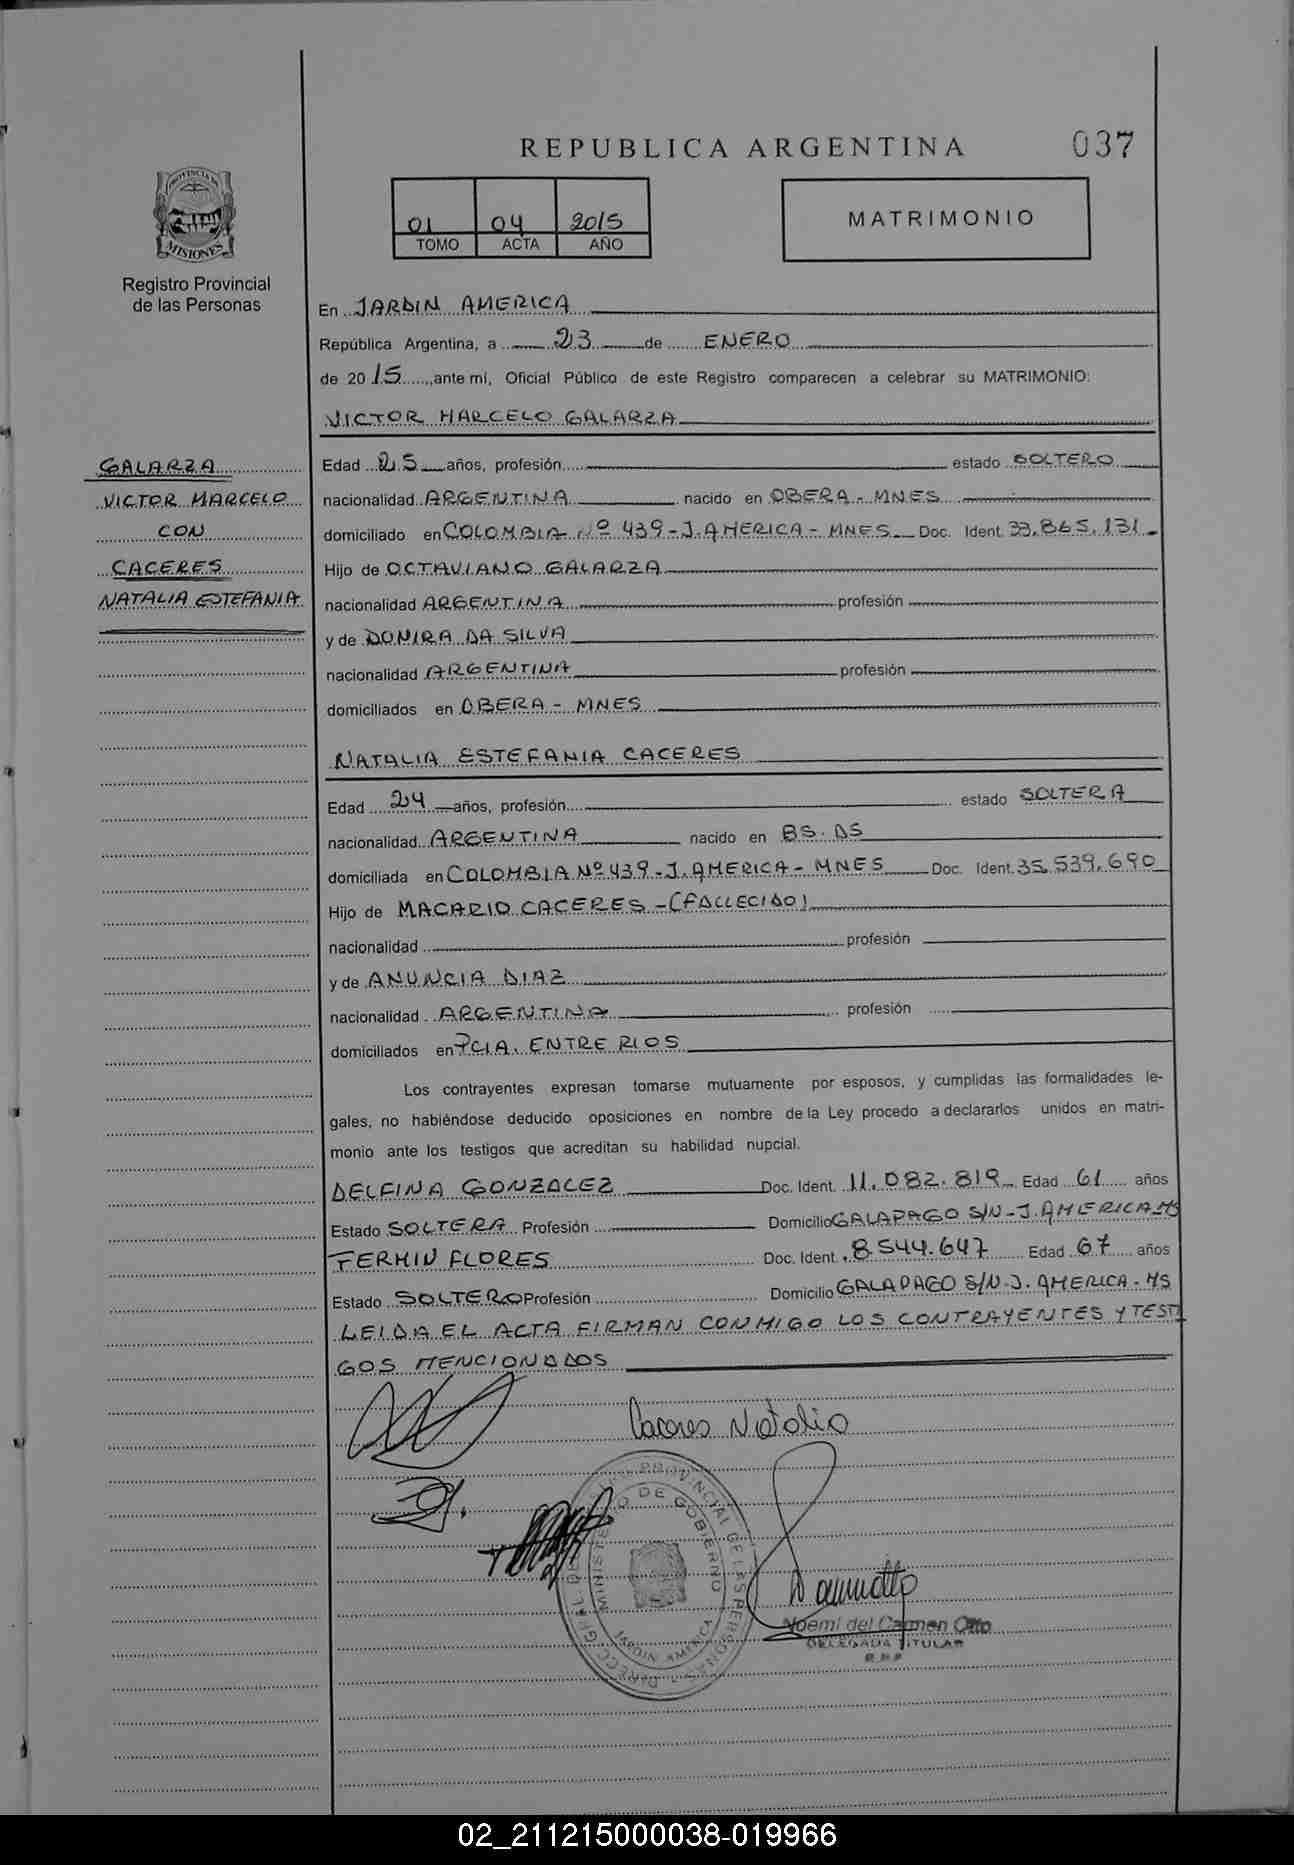 REPUBLICA ARGENTINA
037
01 04 2015
TOMO ACTA AÑO
MATRIMONIO
PROVINCIA DE
MISIONES
Registro Provincial
de las Personas
En JARDIN AMERICA
República Argentina, a 23 de ENERO
de 2015, ante mí, Oficial Público de este Registro comparecen a celebrar su MATRIMONIO:
VICTOR MARCELO GALARZA
GALARZA
VICTOR MARCELO
CON
CACERES
NATALIA ESTEFANIA
Edad 25 años, profesión estado SOLTERO
nacionalidad ARGENTINA nacido en OBERA - MNES
domiciliado en COLOMBIA Nº 439 - J. AMERICA - MNES Doc. Ident. 33.865.131
Hijo de OCTAVIANO GALARZA
nacionalidad ARGENTINA profesión
y de DOMIRA DA SILVA
nacionalidad ARGENTINA profesión
domiciliados en OBERA - MNES
NATALIA ESTEFANIA CACERES
Edad 24 años, profesión estado SOLTERA
nacionalidad ARGENTINA nacido en BS. AS
domiciliada en COLOMBIA Nº 439 - J. AMERICA - MNES Doc. Ident. 35.539.690
Hijo de MACARIO CACERES - (FALLECIDO)
nacionalidad profesión
y de ANUNCIA DIAZ
nacionalidad ARGENTINA profesión
domiciliados en PCIA. ENTRE RIOS
Los contrayentes expresan tomarse mutuamente por esposos, y cumplidas las formalidades le-
gales, no habiéndose deducido oposiciones en nombre de la Ley procedo a declararlos unidos en matri-
monio ante los testigos que acreditan su habilidad nupcial.
DELFINA GONZALEZ Doc. Ident. 11.082.819 Edad 61 años
Estado SOLTERA Profesión Domicilio GALAPAGO S/N - J. AMERICA - MS
FERMIN FLORES Doc. Ident. 8.544.647 Edad 67 años
Estado SOLTERO Profesión Domicilio GALAPAGO S/N - J. AMERICA - MS
LEIDA EL ACTA FIRMAN CONMIGO LOS CONTRAYENTES Y TESTI
GOS MENCIONADOS
Caceres Natalia
MINISTERIO DE GOBIERNO
JARDIN AMERICA
Noemi del Carmen Otto
DELEGADA TITULAR
R.P.P
02_211215000038-019966